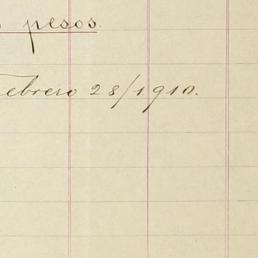 pesos.
Febrero 28/1910.